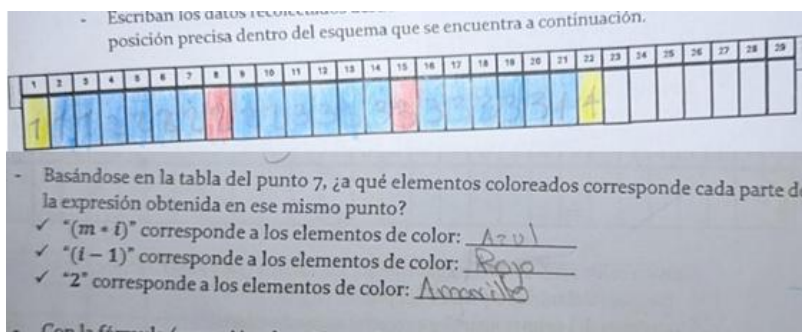 - Escriban los datos
posición precisa dentro del esquema que se encuentra a continuación.
1 2 3 4 5 6 7 8 9 10 11 12 13 14 15 16 17 18 19 20 21 22 23 24 25 26 27 28 29
1 1 1 2 2 2 2 3 3 3 3 3 3 4 4
- Basándose en la tabla del punto 7, ¿a qué elementos coloreados corresponde cada parte de
la expresión obtenida en ese mismo punto?
✓ "(m * i)" corresponde a los elementos de color: Azul
✓ "(i – 1)" corresponde a los elementos de color: Rojo
✓ "2" corresponde a los elementos de color: Amarillo